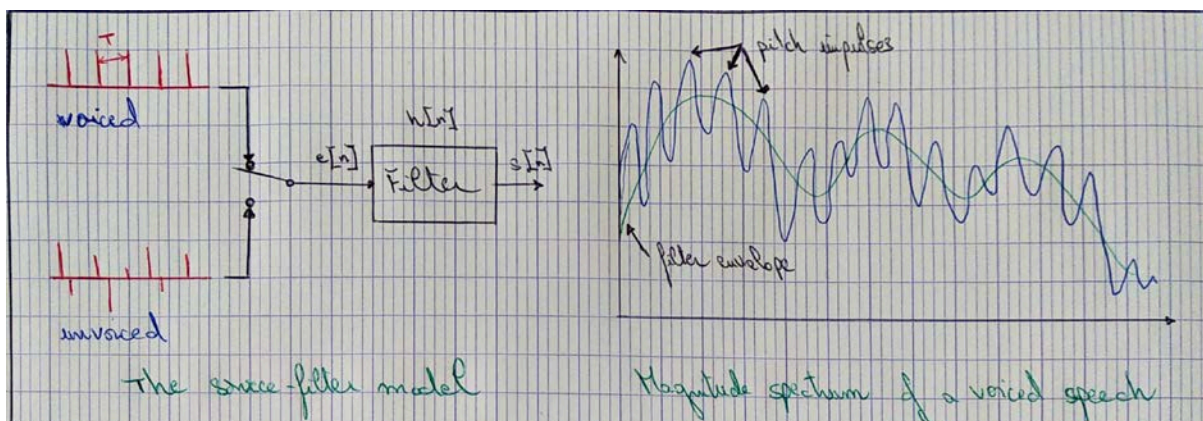 T
voiced
unvoiced
e[n]
h[n]
Filter
s[n]
The source-filter model
pitch impulses
filter envelope
Magnitude spectrum of a voiced speech